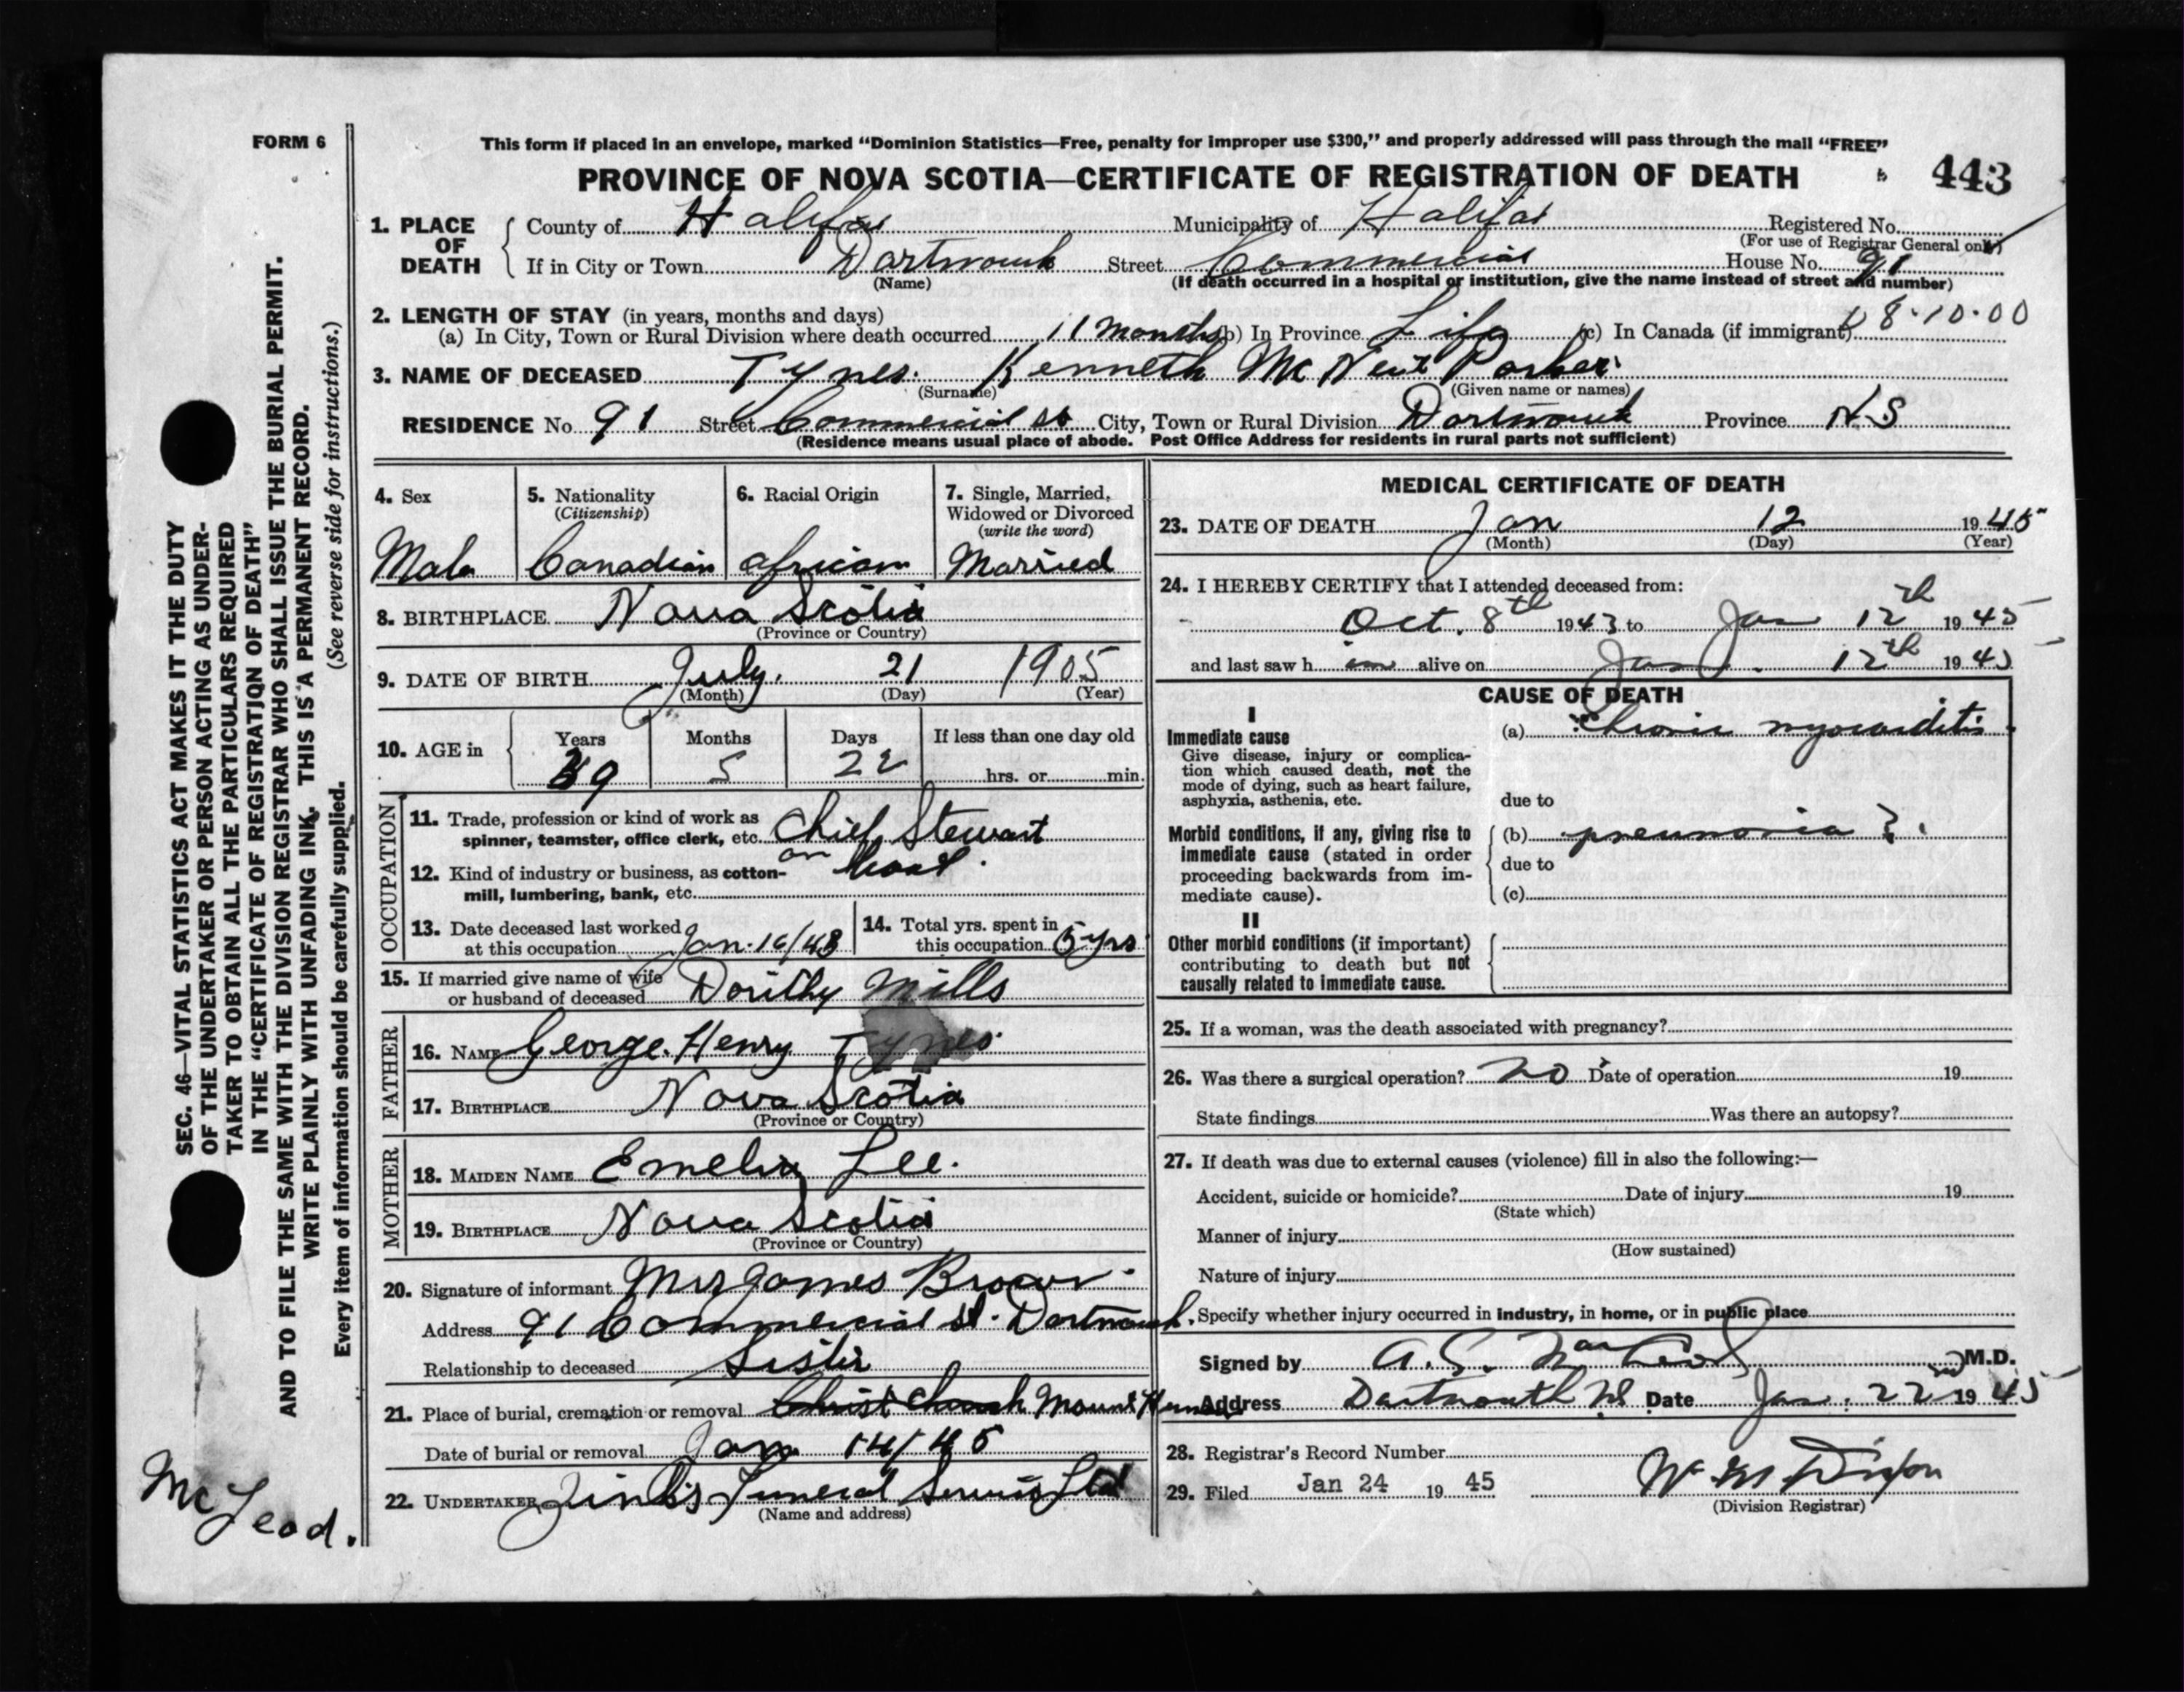 FORM 6
This form if placed in an envelope, marked “Dominion Statistics—Free, penalty for improper use $300,” and properly addressed will pass through the mail “FREE”
PROVINCE OF NOVA SCOTIA—CERTIFICATE OF REGISTRATION OF DEATH 443
1. PLACE OF DEATH County of Halifax Municipality of Halifax Registered No.
(For use of Registrar General only)
If in City or Town Dartmouth Street Commercial House No. 91
(Name) (If death occurred in a hospital or institution, give the name instead of street and number)
2. LENGTH OF STAY (in years, months and days)
(a) In City, Town or Rural Division where death occurred 11 months (b) In Province Life (c) In Canada (if immigrant) 8.10.00
3. NAME OF DECEASED Tynes. Kenneth McNeil Parker
(Surname) (Given name or names)
RESIDENCE No 91 Street Commercial St City, Town or Rural Division Dartmouth Province N.S
(Residence means usual place of abode. Post Office Address for residents in rural parts not sufficient)
4. Sex
Male
5. Nationality
(Citizenship)
Canadian
6. Racial Origin
African
7. Single, Married,
Widowed or Divorced
(write the word)
Married
8. BIRTHPLACE Nova Scotia
(Province or Country)
9. DATE OF BIRTH July. 21 1905
(Month) (Day) (Year)
10. AGE in Years Months Days If less than one day old
39 5 22 hrs. or min.
OCCUPATION
11. Trade, profession or kind of work as
spinner, teamster, office clerk, etc. Chief Stewart
on boat.
12. Kind of industry or business, as cotton-
mill, lumbering, bank, etc.
13. Date deceased last worked
at this occupation Jan. 16/43
14. Total yrs. spent in
this occupation 5 yrs
15. If married give name of wife
or husband of deceased Dorithy Mills
FATHER
16. NAME George. Henry Tynes.
17. BIRTHPLACE Nova Scotia
(Province or Country)
MOTHER
18. MAIDEN NAME Emelia Lee.
19. BIRTHPLACE Nova Scotia
(Province or Country)
20. Signature of informant Mrs James Brown
Address 91 Commercial St. Dartmouth.
Relationship to deceased Sister
21. Place of burial, cremation or removal Christ Church Mount
Date of burial or removal Jan 14/45
22. UNDERTAKER Zink's Funeral Service Ltd
(Name and address)
MEDICAL CERTIFICATE OF DEATH
23. DATE OF DEATH Jan 12 1945
(Month) (Day) (Year)
24. I HEREBY CERTIFY that I attended deceased from:
Oct. 8th 1943 to Jan 12th 1945
and last saw h im alive on Jany. 12th 1945
CAUSE OF DEATH
I
Immediate cause
Give disease, injury or complica-
tion which caused death, not the
mode of dying, such as heart failure,
asphyxia, asthenia, etc.
(a) Chronic myocarditis.
due to
Morbid conditions, if any, giving rise to
immediate cause (stated in order
proceeding backwards from im-
mediate cause).
(b) pneumonia ?.
due to
(c)
II
Other morbid conditions (if important)
contributing to death but not
causally related to immediate cause.
25. If a woman, was the death associated with pregnancy?
26. Was there a surgical operation? no Date of operation 19
State findings Was there an autopsy?
27. If death was due to external causes (violence) fill in also the following:—
Accident, suicide or homicide? Date of injury 19
(State which)
Manner of injury
(How sustained)
Nature of injury
Specify whether injury occurred in industry, in home, or in public place
Signed by M.D.
Address Dartmouth NS Date Jan. 22nd 1945
28. Registrar's Record Number
29. Filed Jan 24 19 45
(Division Registrar)
SEC. 46—VITAL STATISTICS ACT MAKES IT THE DUTY
OF THE UNDERTAKER OR PERSON ACTING AS UNDER-
TAKER TO OBTAIN ALL THE PARTICULARS REQUIRED
IN THE “CERTIFICATE OF REGISTRATION OF DEATH”
AND TO FILE THE SAME WITH THE DIVISION REGISTRAR WHO SHALL ISSUE THE BURIAL PERMIT.
WRITE PLAINLY WITH UNFADING INK. THIS IS A PERMANENT RECORD.
Every item of information should be carefully supplied. (See reverse side for instructions.)
McLeod.